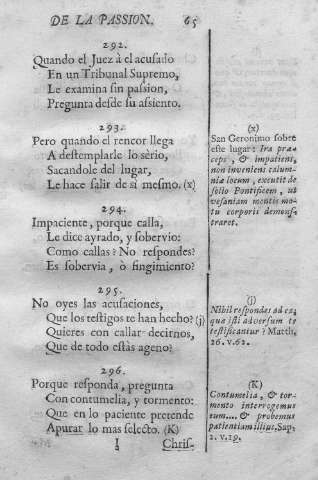 DE LA PASSION. 65
292.
Quando el Juez à el acusado
En un Tribunal Supremo,
Le examina sin passion,
Pregunta desde su assiento.
293.
Pero quando el rencor llega
A destemplarle lo sèrio,
Sacandole del lugar,
Le hace salir de sì mesmo. (x)
294.
Impaciente, porque calla,
Le dice ayrado, y sobervio:
Como callas? No respondes?
Es sobervia, ò fingimiento?
295.
No oyes las acusaciones,
Que los testigos te han hecho? (j)
Quieres con callar decirnos,
Que de todo estàs ageno?
296.
Porque responda, pregunta
Con contumelia, y tormento:
Que en lo paciente pretende
Apurar lo mas selecto. (K)
I
Chris-
(x)
San Geronimo sobre
este lugar: Ira præ-
ceps, & impatiens,
non inveniens calum-
niæ locum, excutit de
solio Pontificem, ut
vesaniam mentis mo-
tu corporis demons-
traret.
(j)
Nihil respondes ad ea,
quæ isti adversum te
testificantur? Matth.
26. v. 62.
(K)
Contumelia, & tor-
mento interrogemus
eum.... & probemus
patientiam illius. Sap.
2. v. 19.